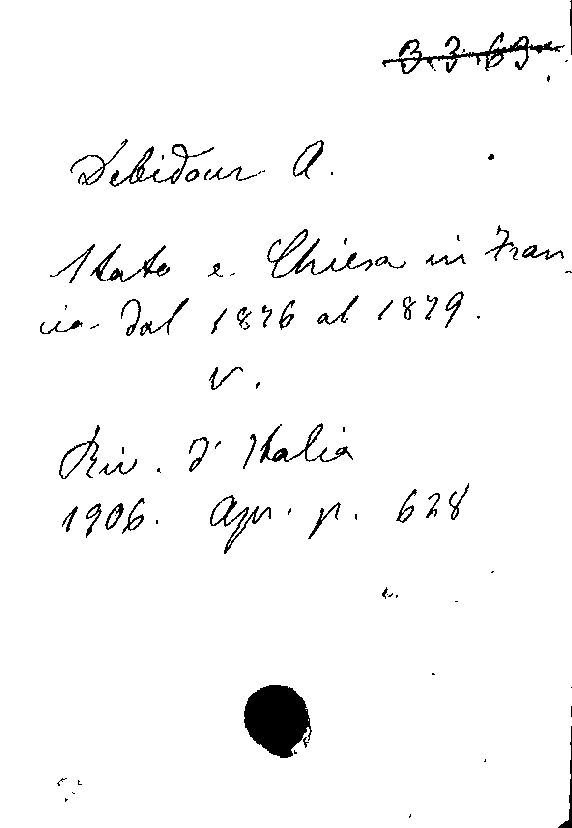 3.3.63.
Debidour A.
Stato e Chiesa in Fran-
cia dal 1876 al 1879.
V.
Riv. d'Italia
1906. Apr. p. 628